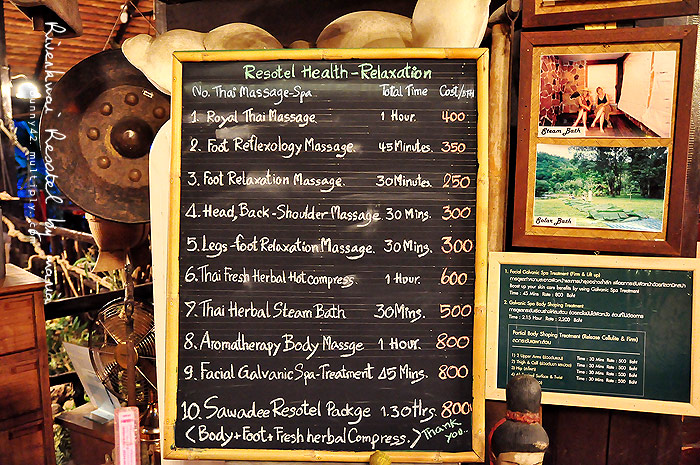 Riverkwai Resotel by manja
punny42.multiply.com
Resotel Health-Relaxation
No. Thai Massage-Spa Total Time Cost/BTH
1. Royal Thai Massage 1 Hour. 400
2. Foot Reflexology Massage. 45 Minutes. 350
3. Foot Relaxation Massage. 30 Minutes. 250
4. Head, Back-Shoulder Massage. 30 Mins. 300
5. Legs-foot Relaxation Massage. 30 Mins. 300
6. Thai Fresh Herbal Hot compress. 1 Hour. 600
7. Thai Herbal Steam Bath 30 Mins. 500
8. Aromatherapy Body Massge 1 Hour. 800
9. Facial Galvanic Spa-Treatment 45 Mins. 800
10. Sawadee Resotel Packge 1.30 Hrs. 800
(Body+Foot+Fresh herbal Compress.) Thank you..
Steam Bath
Solar Bath
1. Facial Galvanic Spa Treatment (Firm & Lift up)
Boost up your skin care benefits by using Galvanic Spa Treatment
Time : 45 Mins Rate : 800 Baht
2. Galvanic Spa Body Shaping Treatment
Time : 2.15 Hour Rate : 2,200 Baht
Partial Body Shaping Treatment (Release Cellulite & Firm)
1) 2 Upper Arms Time : 30 Mins Rate : 500 Baht
2) Thigh & Calf Time : 30 Mins Rate : 500 Baht
3) Hip Time : 30 Mins Rate : 500 Baht
Surface & Twist
Time : 30 Mins Rate : 500 Baht